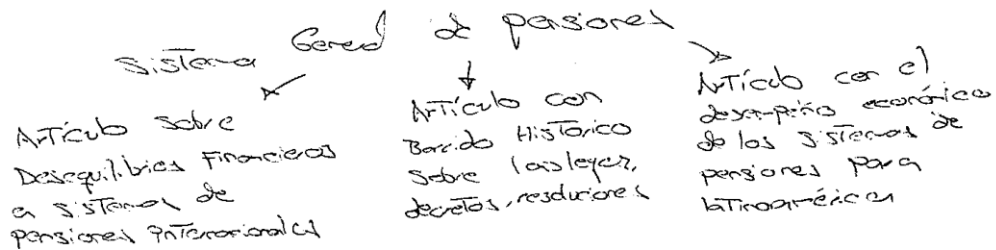 Sistema General de pensiones
Artículo sobre
Desequilibrios Financieros
en sistemas de
pensiones internacionales
Artículo con
Barrido Histórico
sobre las leyes,
decretos, resoluciones
Artículo con el
desempeño económico
de los sistemas de
pensiones para
latinoamérica